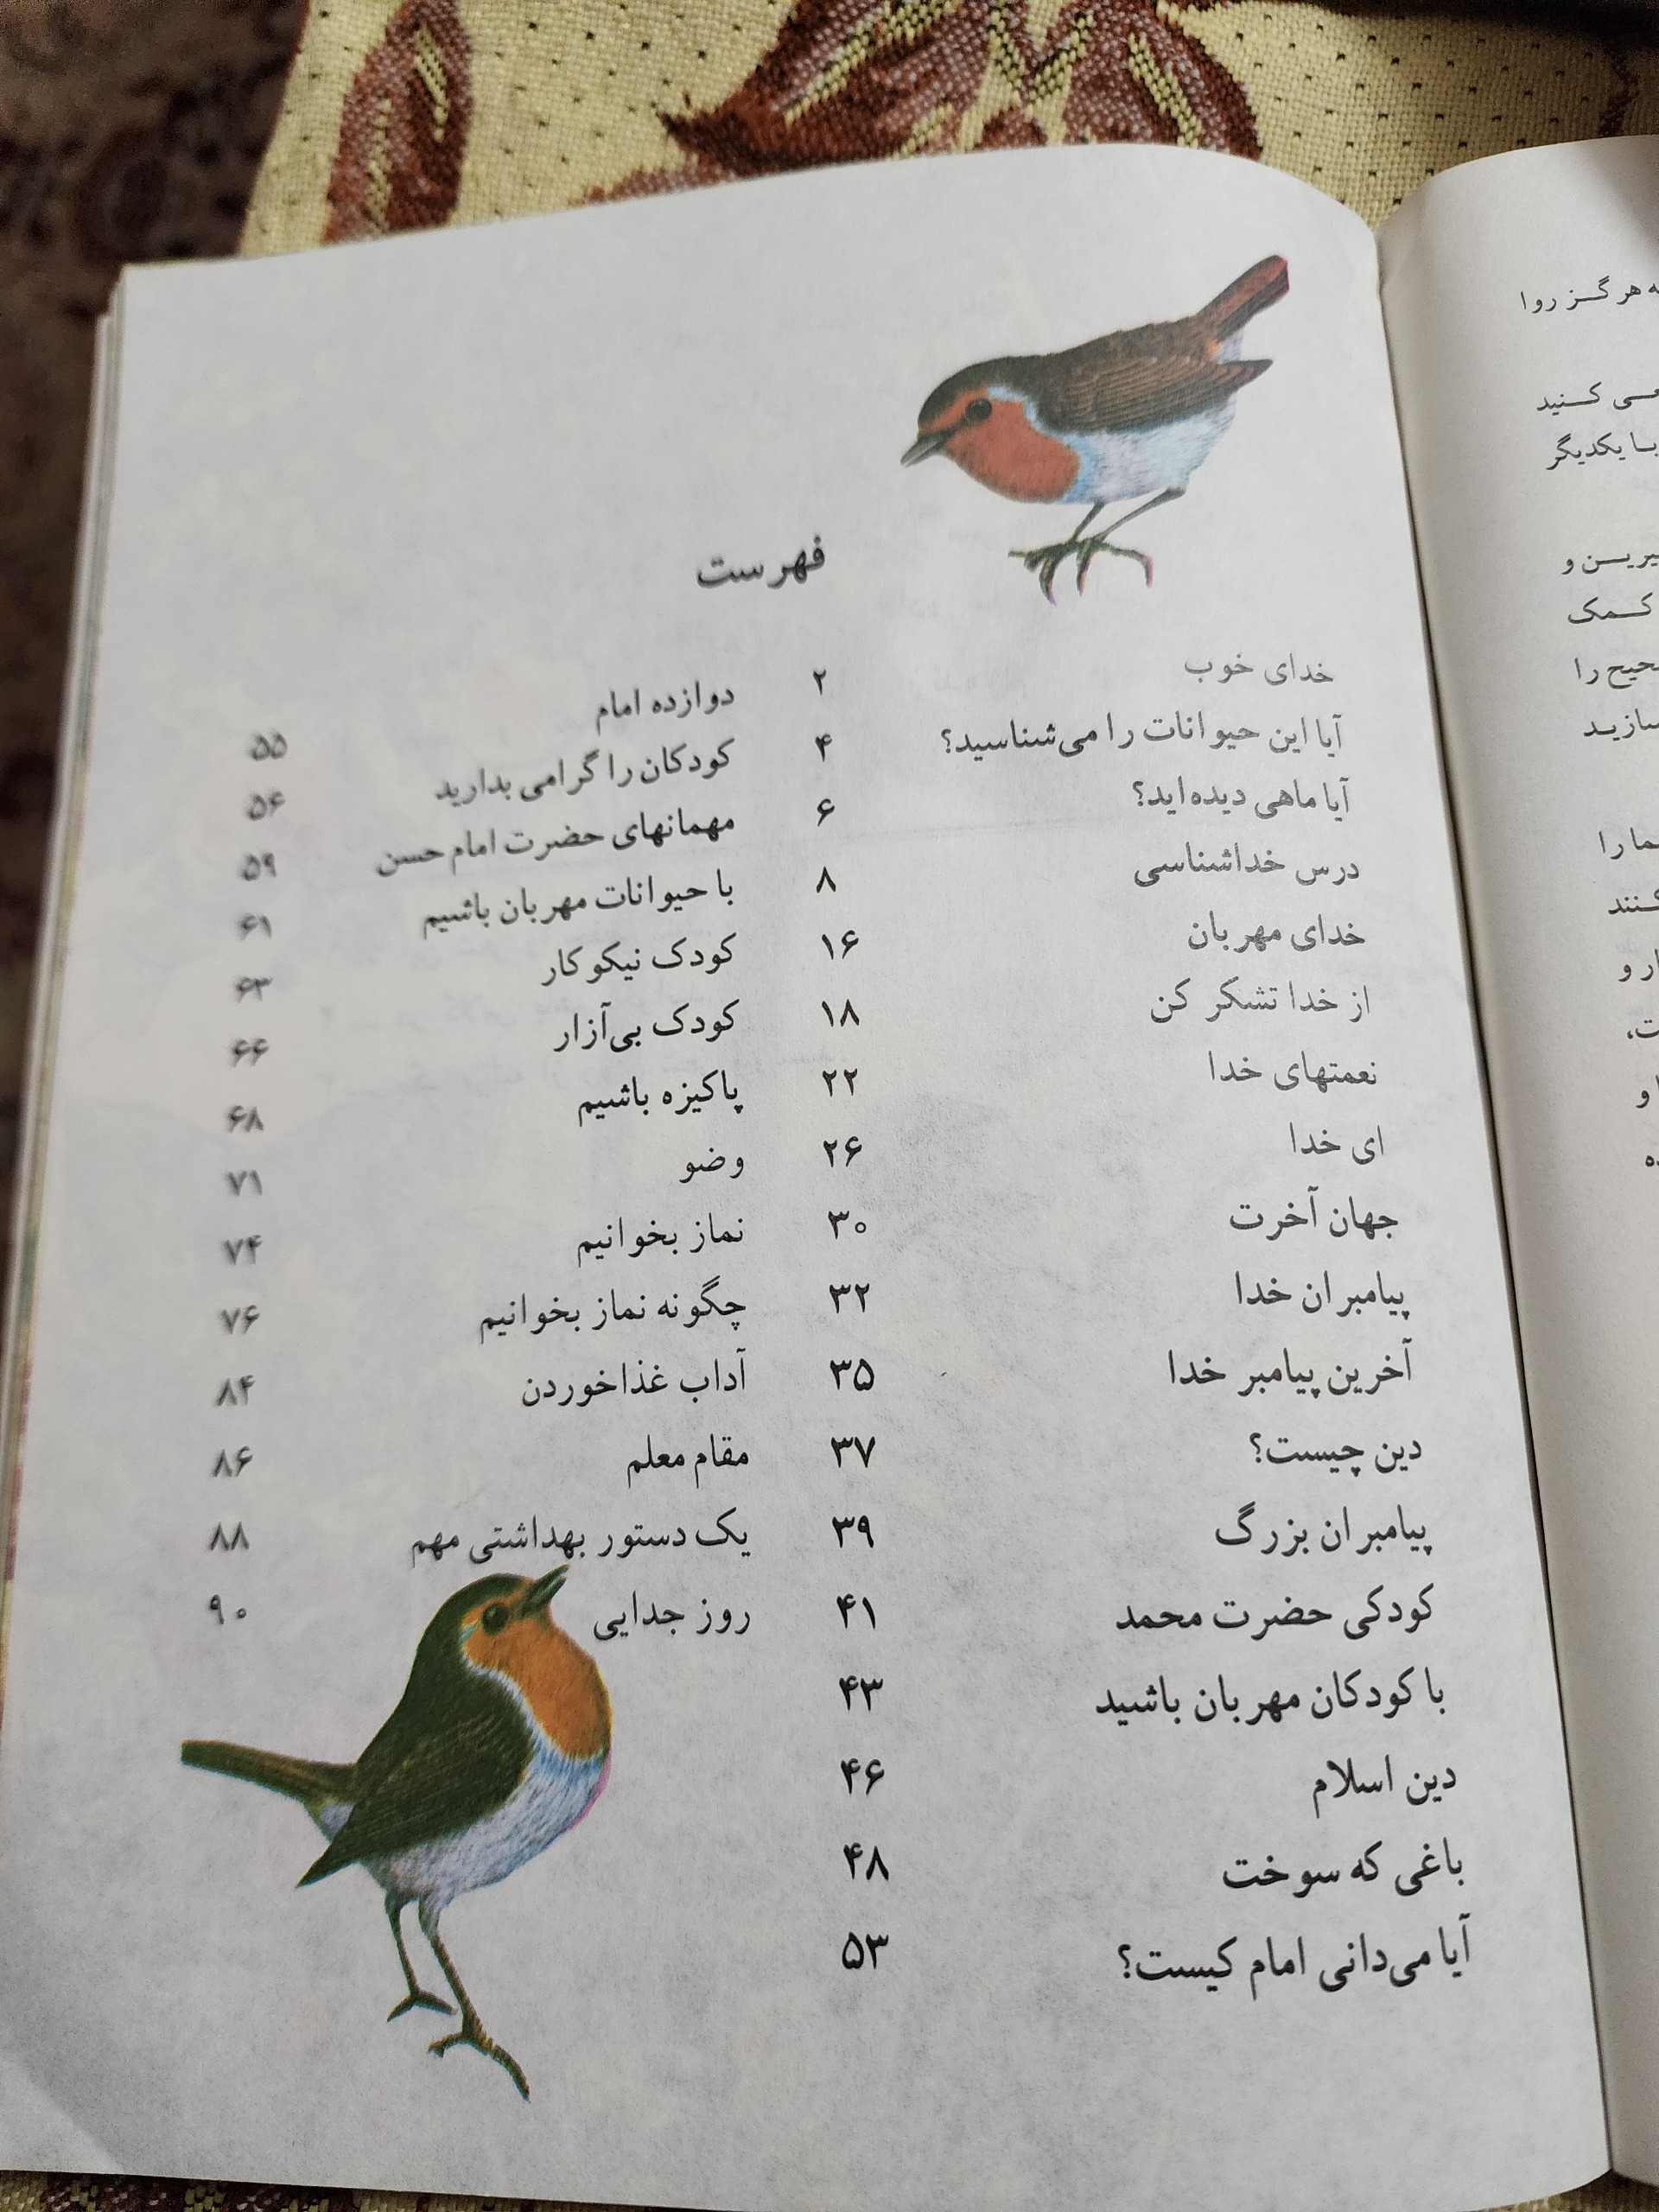 فهرست
خدای خوب ۲
آیا این حیوانات را می‌شناسید؟ ۴
آیا ماهی دیده‌اید؟ ۶
درس خداشناسی ۸
خدای مهربان ۱۶
از خدا تشکر کن ۱۸
نعمتهای خدا ۲۲
ای خدا ۲۶
جهان آخرت ۳۰
پیامبران خدا ۳۲
آخرین پیامبر خدا ۳۵
دین چیست؟ ۳۷
پیامبران بزرگ ۳۹
کودکی حضرت محمد ۴۱
با کودکان مهربان باشید ۴۳
دین اسلام ۴۶
باغی که سوخت ۴۸
آیا می‌دانی امام کیست؟ ۵۳
دوازده امام ۵۵
کودکان را گرامی بدارید ۵۶
مهمانهای حضرت امام حسن ۵۹
با حیوانات مهربان باشیم ۶۱
کودک نیکوکار ۶۳
کودک بی‌آزار ۶۶
پاکیزه باشیم ۶۸
وضو ۷۱
نماز بخوانیم ۷۴
چگونه نماز بخوانیم ۷۶
آداب غذاخوردن ۸۴
مقام معلم ۸۶
یک دستور بهداشتی مهم ۸۸
روز جدایی ۹۰
هرگز روا
کنید
با یکدیگر
و
کمک
را
را
و
و